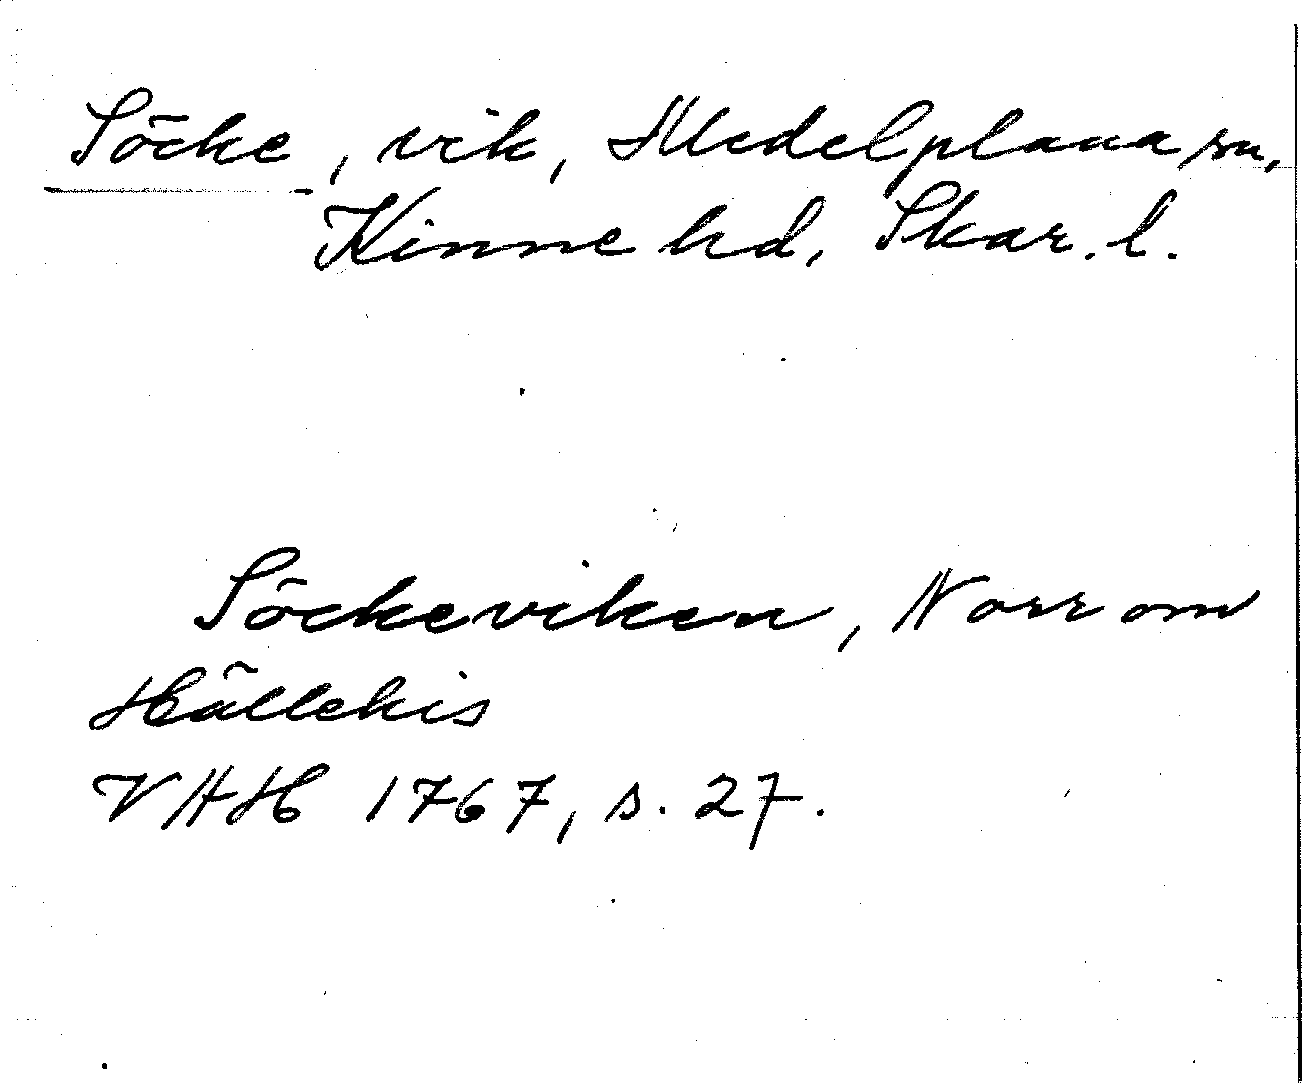 Söcke, vik, Medelplana sn,
Kinne hd, Skar. l.
Söckeviken, Norr om
Hällekis
VAH 1767, s. 27.